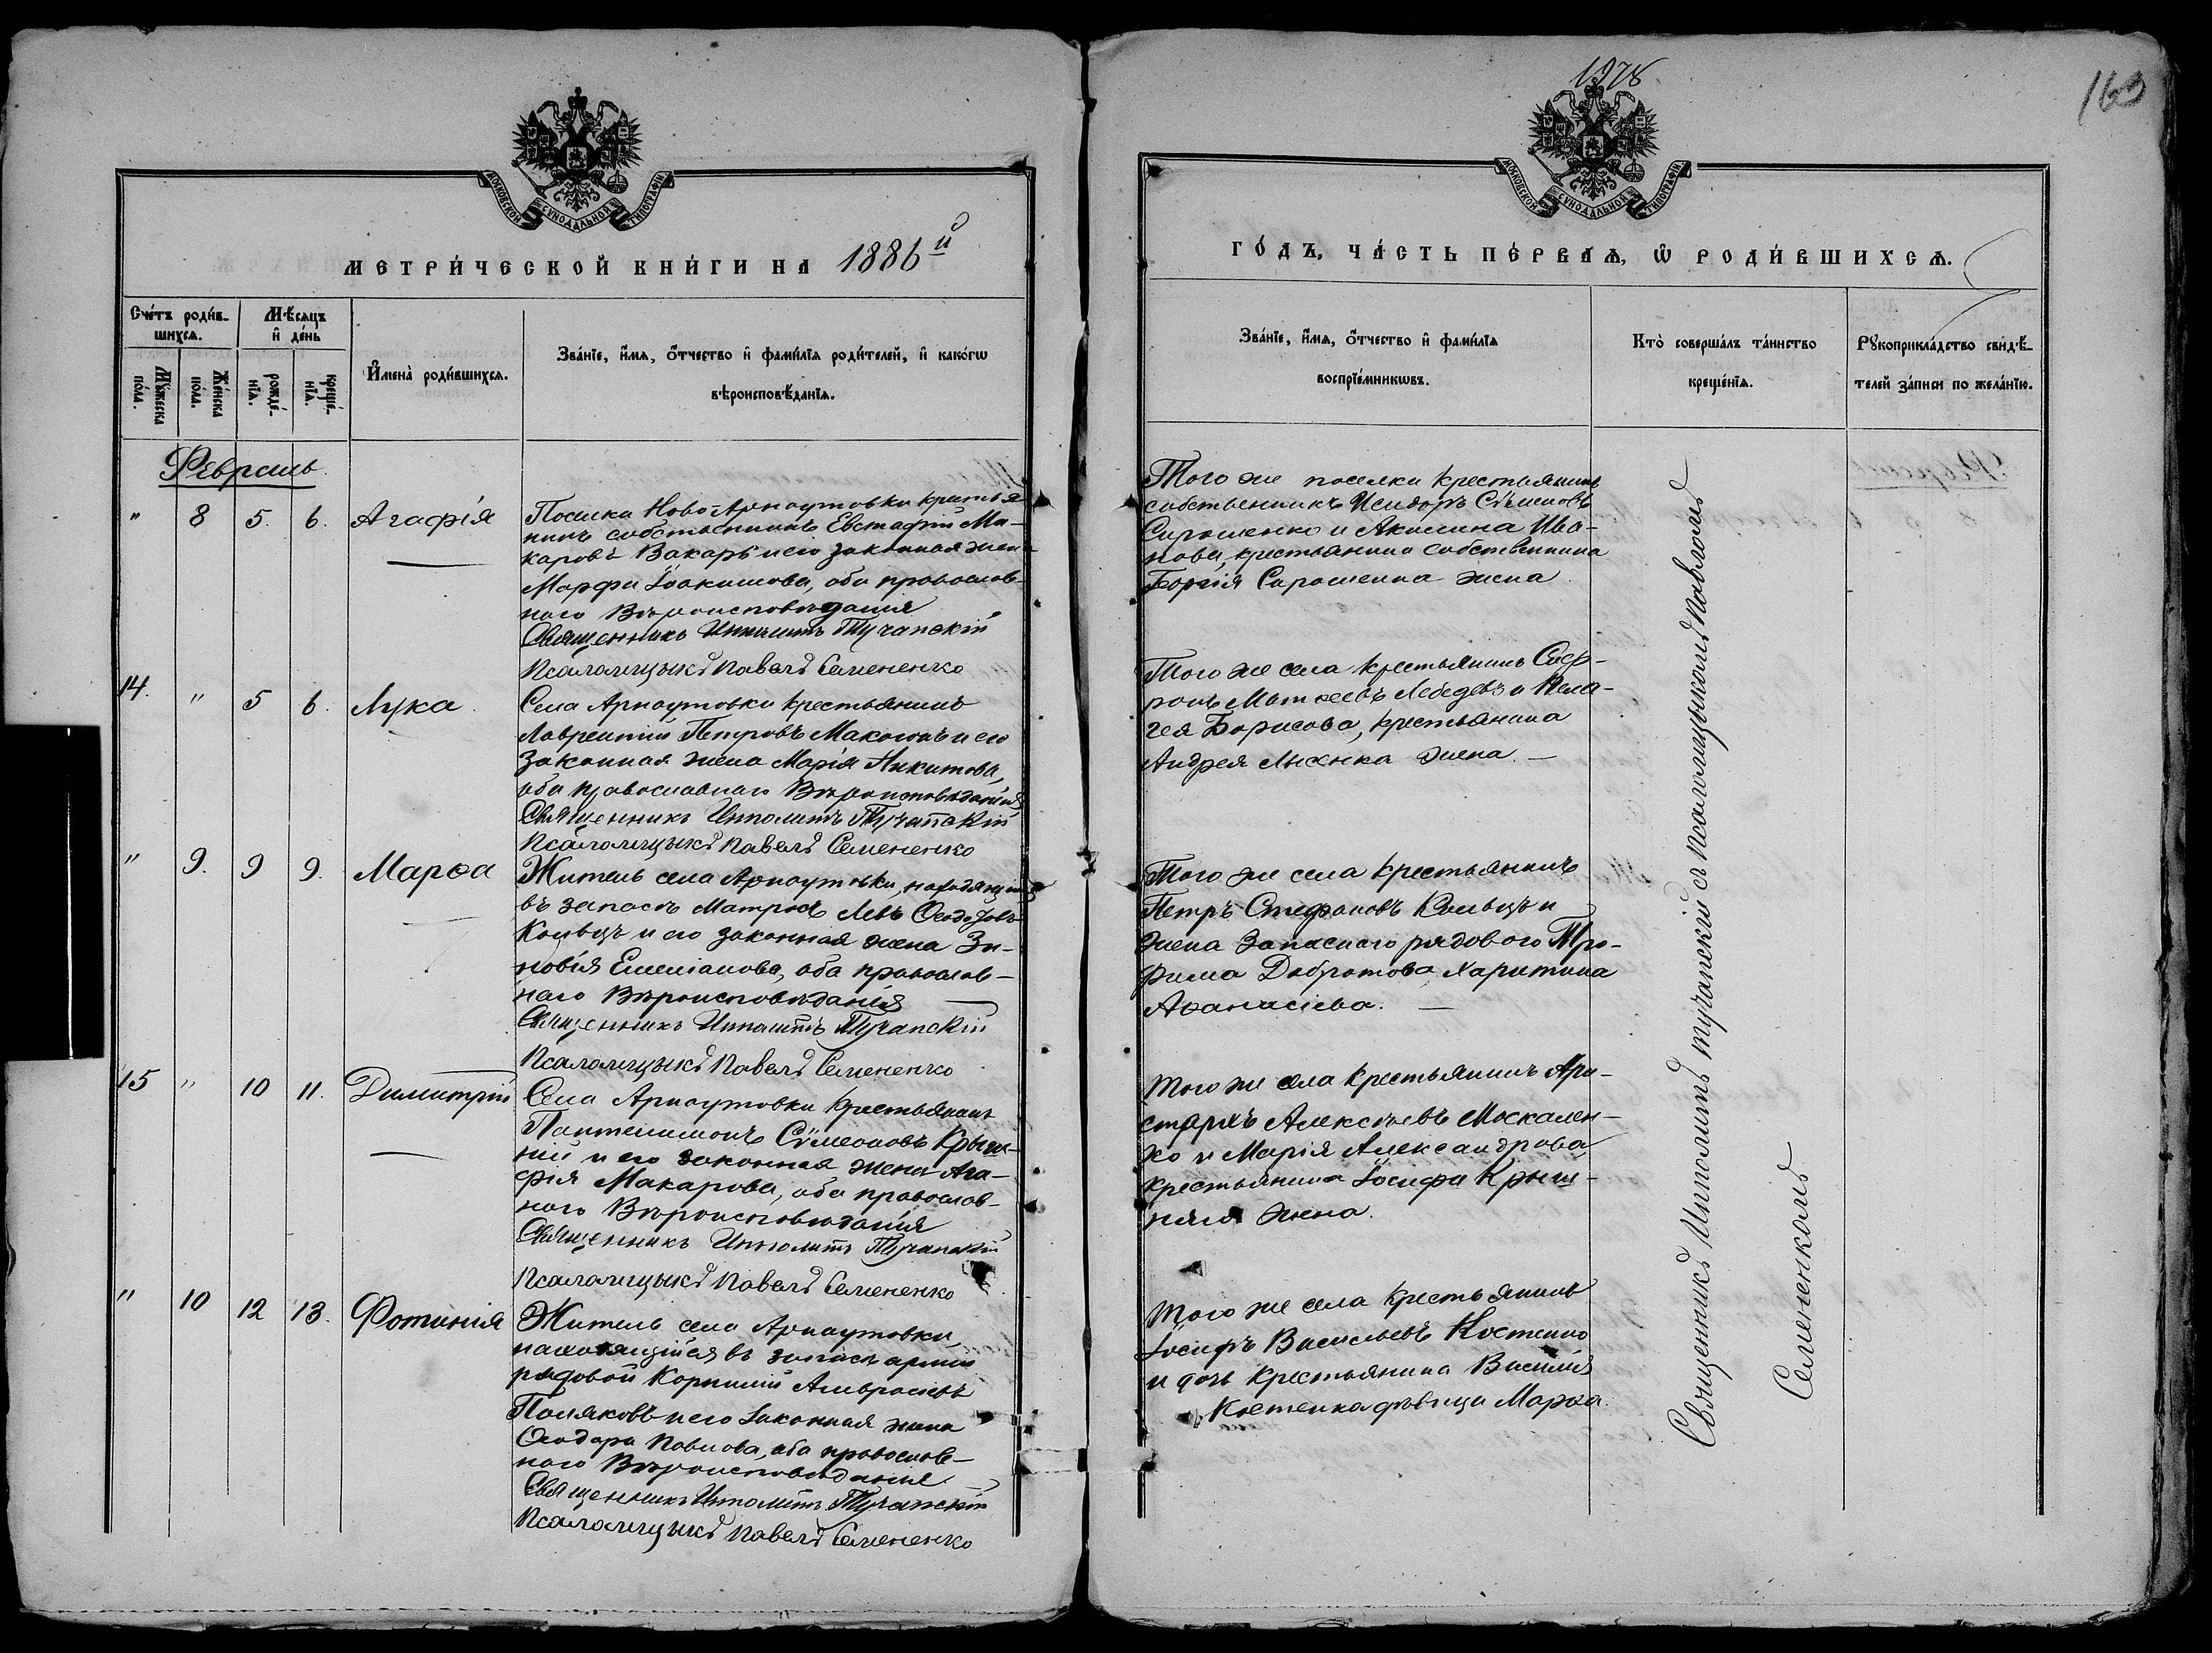 МОСКОВСКОЙ СѴНОДАЛЬНОЙ ТИПОГРАФІИ
МЕТРИ́ЧЕСКОЙ КНИ́ГИ НА 1886й
Сче́тъ роди́в-
шихсѧ.
Мѣ́сѧцъ
и҆ де́нь
Мꙋ́жеска
по́ла.
Же́нска
по́ла.
рожде́-
нїѧ.
креще́-
нїѧ.
И҆мена̀ роди́вшихсѧ.
Зва́нїе, и҆́мѧ, ѻ҆́тчество и҆ фами́лїѧ роди́телей, и҆ како́гѡ
вѣроисповѣ́данїѧ.
Февраль
" 8 5. 6. Агафія
Поселка Ново-Арнаутовки крестья-
нинъ собственникъ Евстафій Ма-
каровъ Вакаръ и его законная жена
Марфа Іоакимова, оба православ-
наго Вѣроисповѣданія
Священникъ Ипполитъ Тучапскій
Псаломщикъ Павелъ Семененко
14. " 5 6. Лука
Села Арнаутовки крестьянинъ
Лаврентій Петровъ Макогонъ и его
законная жена Марія Никитова,
оба православнаго Вѣроисповѣданія
Священникъ Ипполитъ Тучапскій
Псаломщикъ Павелъ Семененко
" 9. 9 9. Марѳа
Житель села Арнаутовки, находящійся
въ запасѣ матросъ Левъ Ѳеодоровъ
Кольцъ и его законная жена Зи-
новія Емеліанова, оба православ-
наго Вѣроисповѣданія
Священникъ Ипполитъ Тучапскій
Псаломщикъ Павелъ Семененко
15 " 10 11. Димитрій
Села Арнаутовки крестьянинъ
Пантелимонъ Сѵмеоновъ Крыш-
ній и его законная жена Ага-
фія Макарова, оба православ-
наго Вѣроисповѣданія
Священникъ Ипполитъ Тучапскій
Псаломщикъ Павелъ Семененко
" 10 12 13. Фотинія
Житель села Арнаутовки,
находящійся въ запасѣ арміи
рядовой Корнилій Амвросіевъ
Поляковъ и его законная жена
Ѳеодора Павлова, оба православ-
наго Вѣроисповѣданія
Священникъ Ипполитъ Тучапскій
Псаломщикъ Павелъ Семененко
1978
160
МОСКОВСКОЙ СѴНОДАЛЬНОЙ ТИПОГРАФІИ
ГО́ДЪ, ЧА́СТЬ ПЕ́РВАѦ, Ѡ҆ РОДИ́ВШИХСѦ.
Зва́нїе, и҆́мѧ, ѻ҆́тчество и҆ фами́лїѧ
воспрїе́мникѡвъ.
Кто̀ соверша́лъ та́инство
креще́нїѧ.
Рꙋкоприкла́дство свидѣ́-
телей за́писи по жела́нїю.
Того же поселка крестьянинъ
собственникъ Исидоръ Сѵмеоновъ
Сирошенко и Акилина Ива-
нова, крестьянина собственника
Георгія Сирошенка жена.
Того же села крестьянинъ Соф-
ронъ Матѳеевъ Лебедевъ и Пела-
гея Борисова, крестьянина
Андрея Лысенка жена.
Того же села крестьянинъ
Петръ Стефановъ Кольцъ и
жена запаснаго рядового Тро-
фима Добротова, Харитина
Аѳанасіева.
Того же села крестьянинъ Ари-
стархъ Алексѣевъ Москален-
ко и Марія Александрова,
крестьянина Іосифа Крыш-
няго жена.
Того же села крестьянинъ
Іосифъ Васильевъ Костенко
и дочь крестьянина Василія
Костенка дѣвица Марѳа.
Священникъ Ипполитъ Тучапскій съ псаломщикомъ Павломъ
Семененкомъ